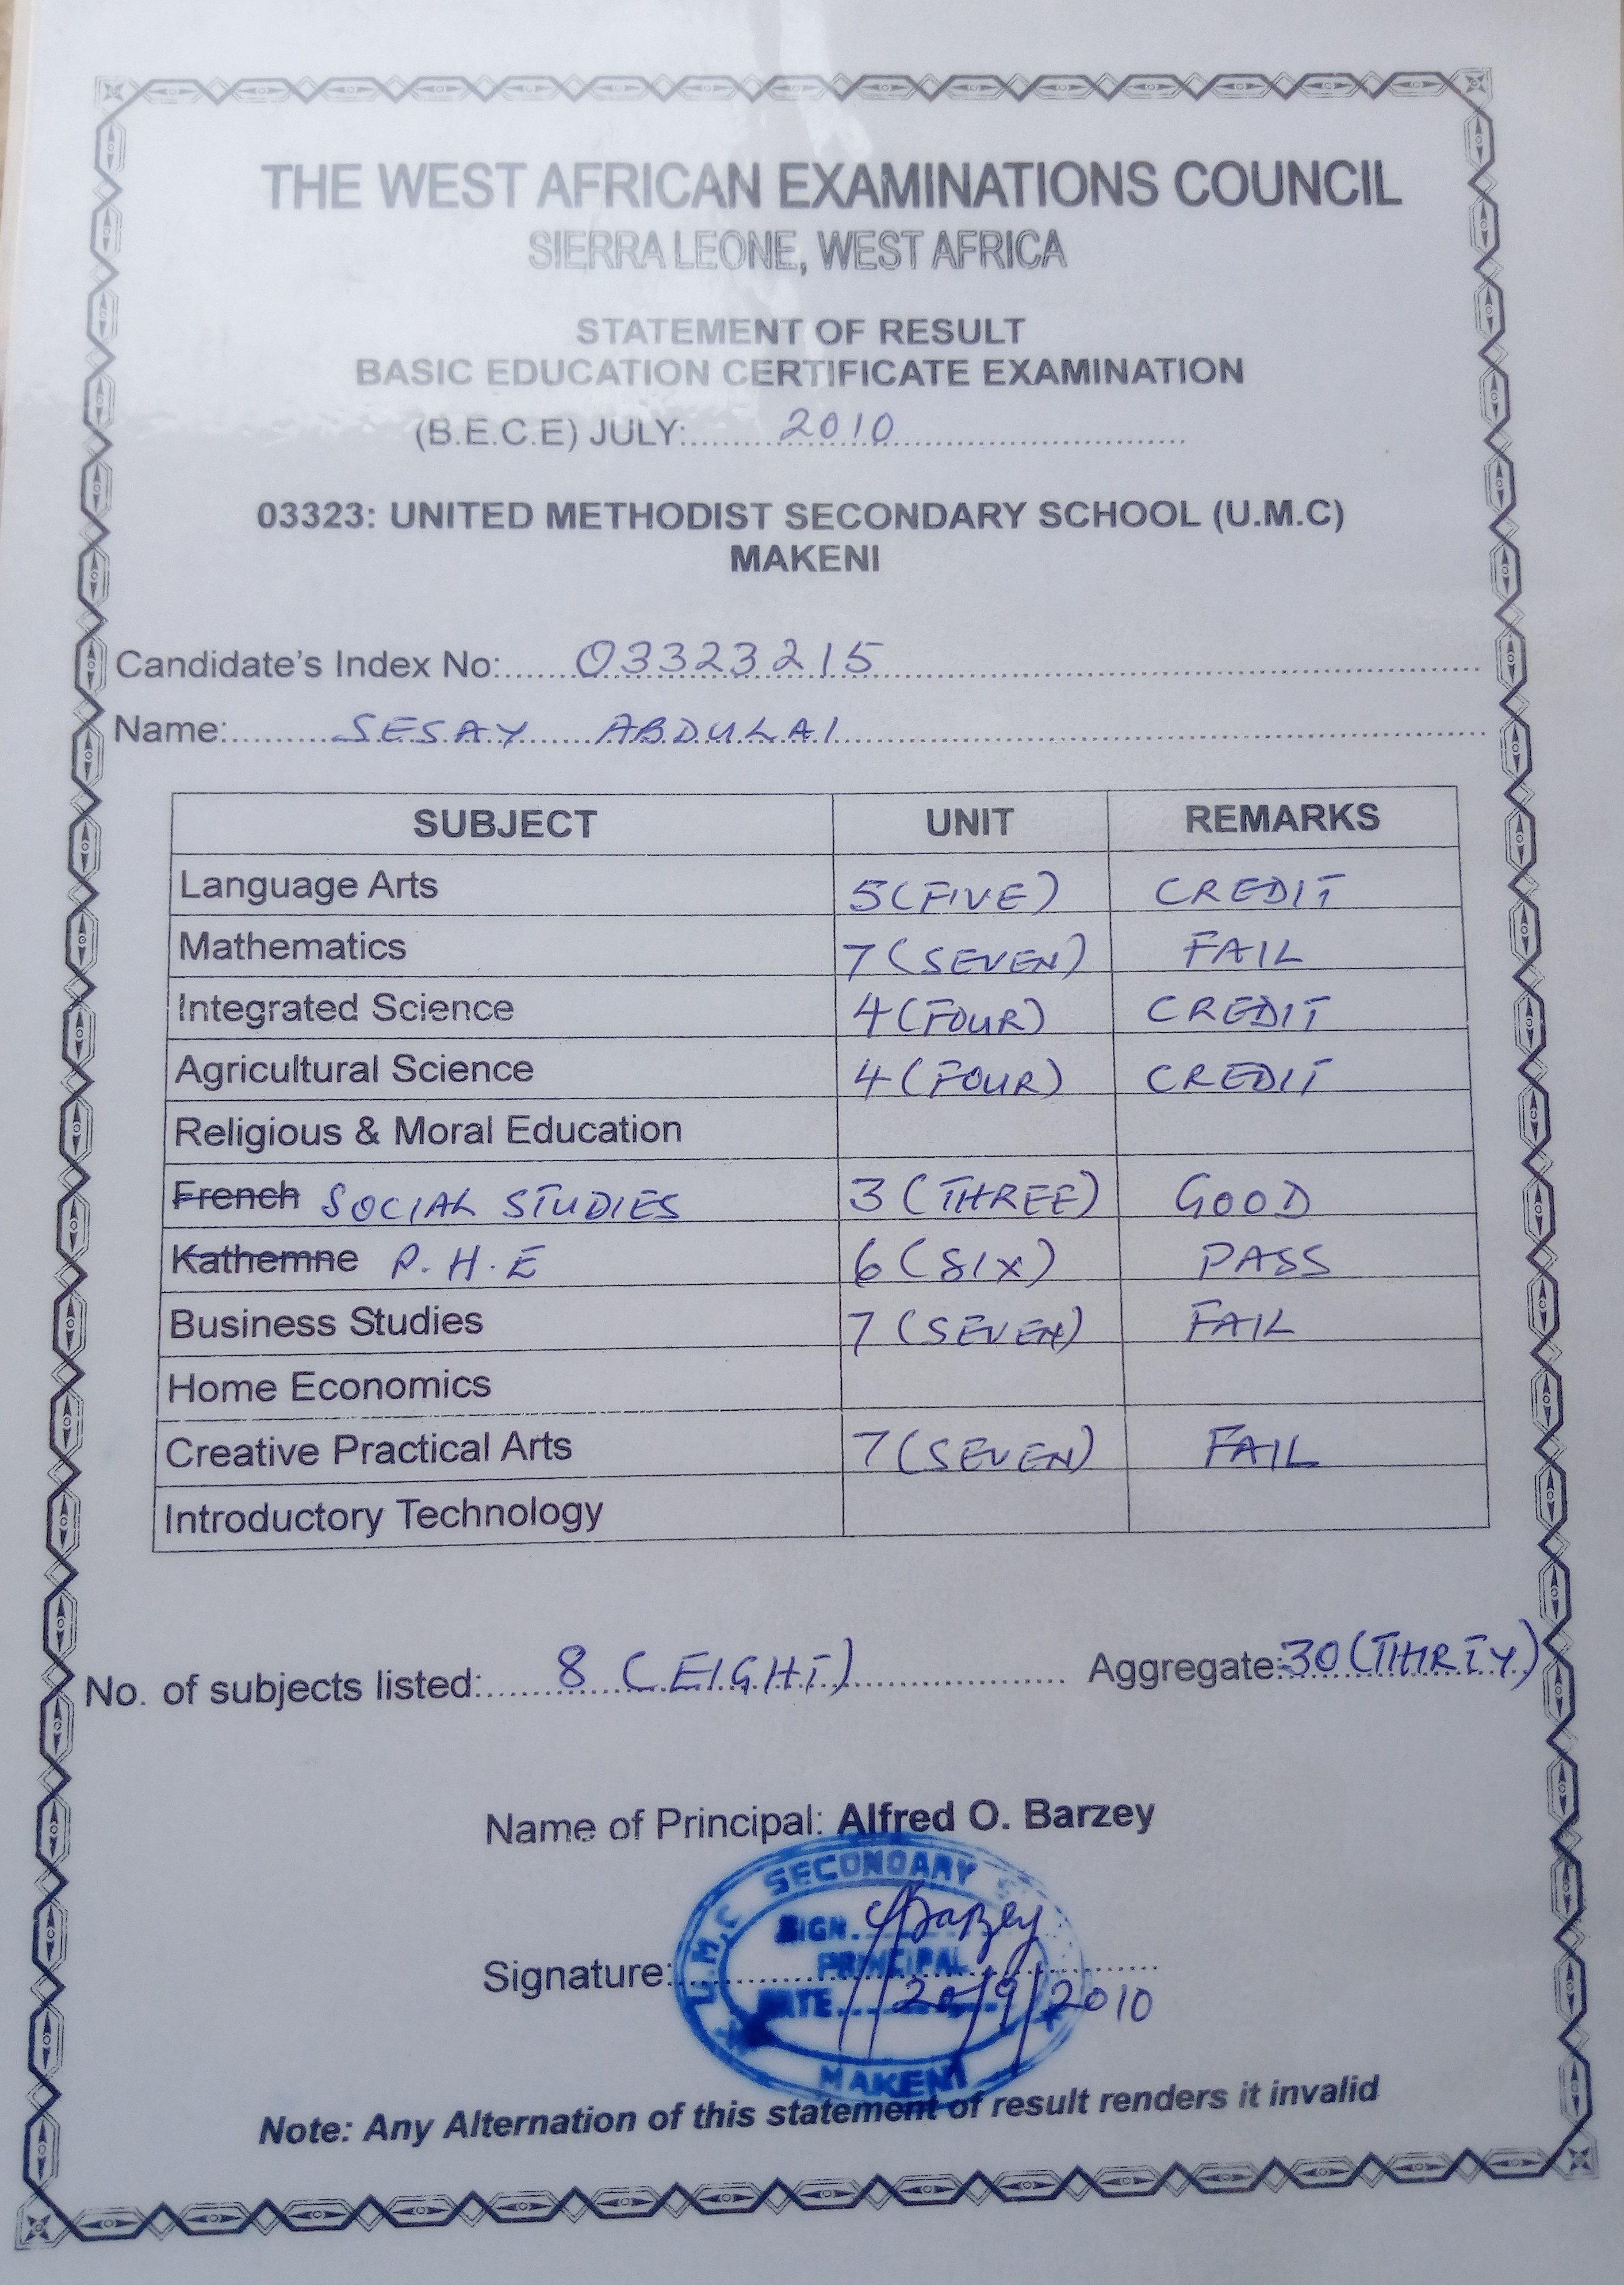 THE WEST AFRICAN EXAMINATIONS COUNCIL
SIERRA LEONE, WEST AFRICA
STATEMENT OF RESULT
BASIC EDUCATION CERTIFICATE EXAMINATION
(B.E.C.E) JULY:........2010..............................
03323: UNITED METHODIST SECONDARY SCHOOL (U.M.C)
MAKENI
Candidate's Index No:......03323215..............................
Name:.........SESAY ABDULAI..............................
SUBJECT UNIT REMARKS
Language Arts 5(FIVE) CREDIT
Mathematics 7(SEVEN) FAIL
Integrated Science 4(FOUR) CREDIT
Agricultural Science 4(FOUR) CREDIT
Religious & Moral Education
French SOCIAL STUDIES 3(THREE) GOOD
Kathemne P.H.E 6(SIX) PASS
Business Studies 7(SEVEN) FAIL
Home Economics
Creative Practical Arts 7(SEVEN) FAIL
Introductory Technology
No. of subjects listed:......8 (EIGHT).................... Aggregate:30(THIRTY)
Name of Principal: Alfred O. Barzey
U.M.C SECONDARY
SIGN. Barzey
PRINCIPAL
Signature:..............................
DATE....20/9/2010
MAKENI
Note: Any Alternation of this statement of result renders it invalid